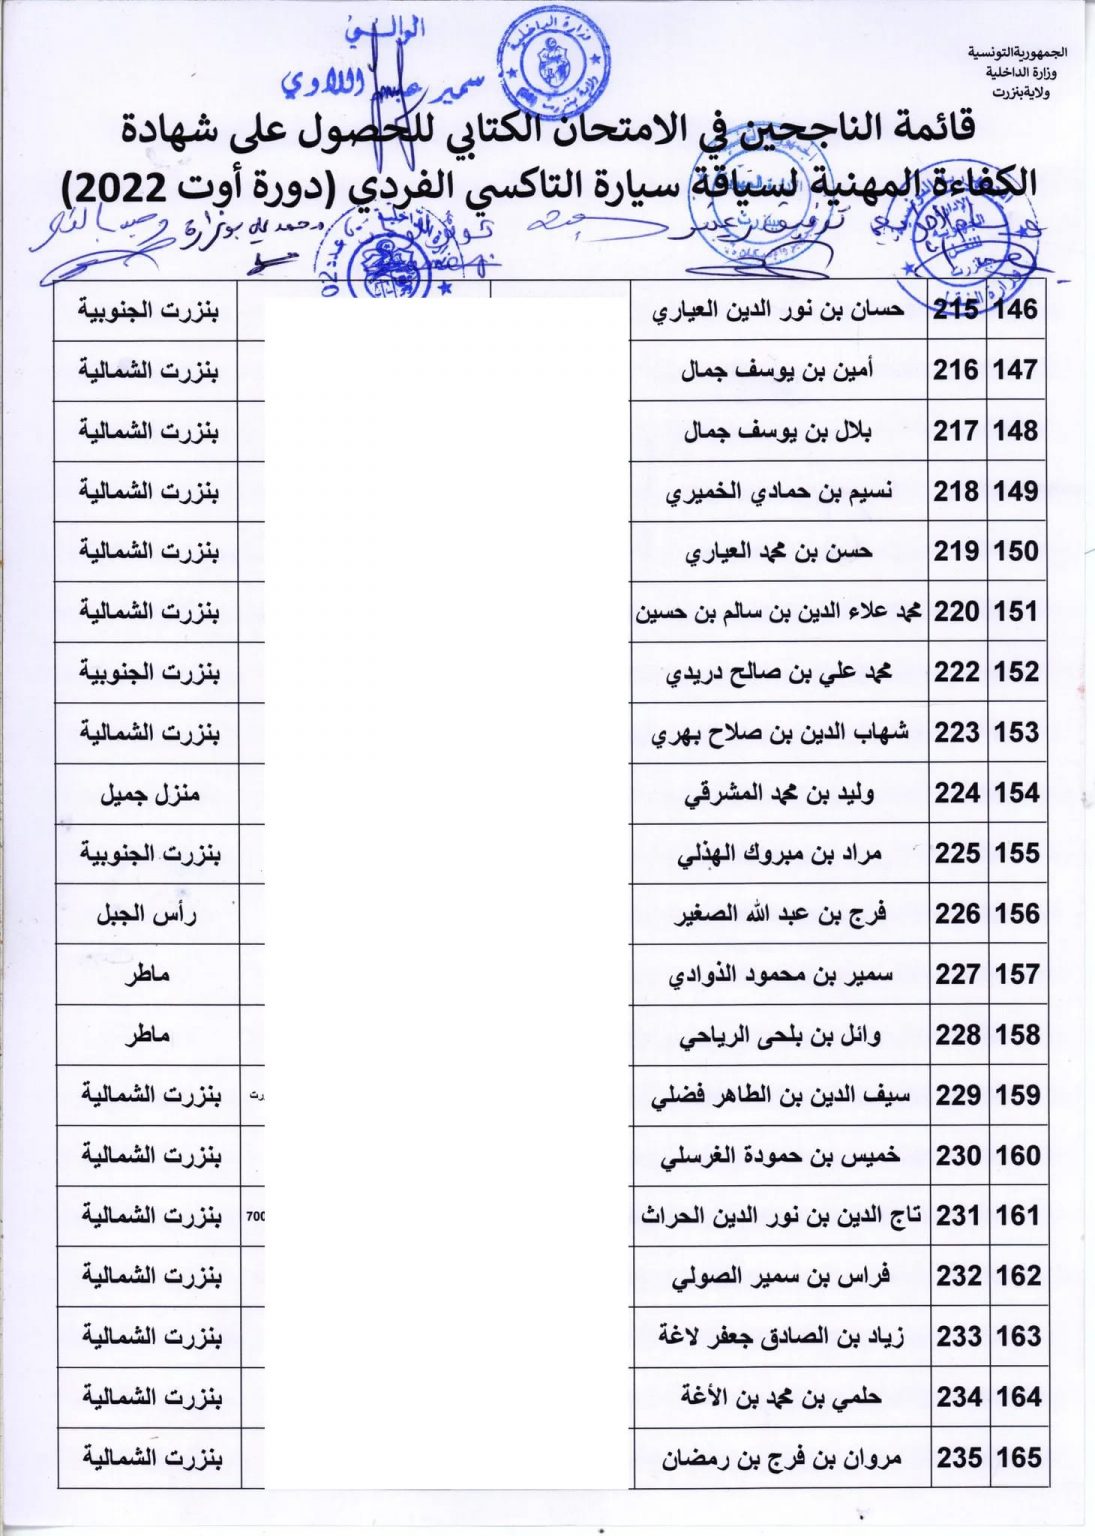 الجمهورية التونسية
وزارة الداخلية
ولاية بنزرت
الوالي
سمير عبد اللاوي
وزارة الداخلية
ولاية بنزرت
قائمة الناجحين في الامتحان الكتابي للحصول على شهادة
الكفاءة المهنية لسياقة سيارة التاكسي الفردي (دورة أوت 2022)
146 215 حسان بن نور الدين العياري بنزرت الجنوبية
147 216 أمين بن يوسف جمال بنزرت الشمالية
148 217 بلال بن يوسف جمال بنزرت الشمالية
149 218 نسيم بن حمادي الخميري بنزرت الشمالية
150 219 حسن بن محمد العياري بنزرت الشمالية
151 220 محمد علاء الدين بن سالم بن حسين بنزرت الشمالية
152 222 محمد علي بن صالح دريدي بنزرت الجنوبية
153 223 شهاب الدين بن صلاح بهري بنزرت الشمالية
154 224 وليد بن محمد المشرقي منزل جميل
155 225 مراد بن مبروك الهذلي بنزرت الجنوبية
156 226 فرج بن عبد الله الصغير رأس الجبل
157 227 سمير بن محمود الذوادي ماطر
158 228 وائل بن بلحى الرياحي ماطر
159 229 سيف الدين بن الطاهر فضلي بنزرت الشمالية
160 230 خميس بن حمودة الغرسلي بنزرت الشمالية
161 231 تاج الدين بن نور الدين الحراث 700 بنزرت الشمالية
162 232 فراس بن سمير الصولي بنزرت الشمالية
163 233 زياد بن الصادق جعفر لاغة بنزرت الشمالية
164 234 حلمي بن محمد بن الأغة بنزرت الشمالية
165 235 مروان بن فرج بن رمضان بنزرت الشمالية